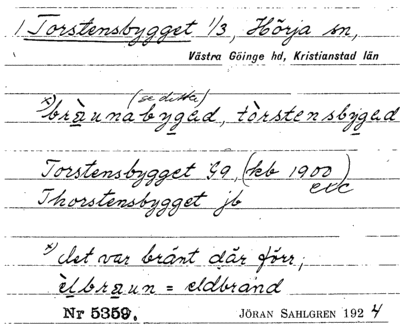 1 Torstensbygget 1/3, Hörja sn,
Västra Göinge hd, Kristianstad län
(se detta)
x) bràunabyged, tòrstensbyged
Torstensbygget Gg, (kb 1900)
etc
Thorstensbygget jb
x) det var bränt där förr,
èlbraun = eldbrand
Nr 5359. JÖRAN SAHLGREN 1924